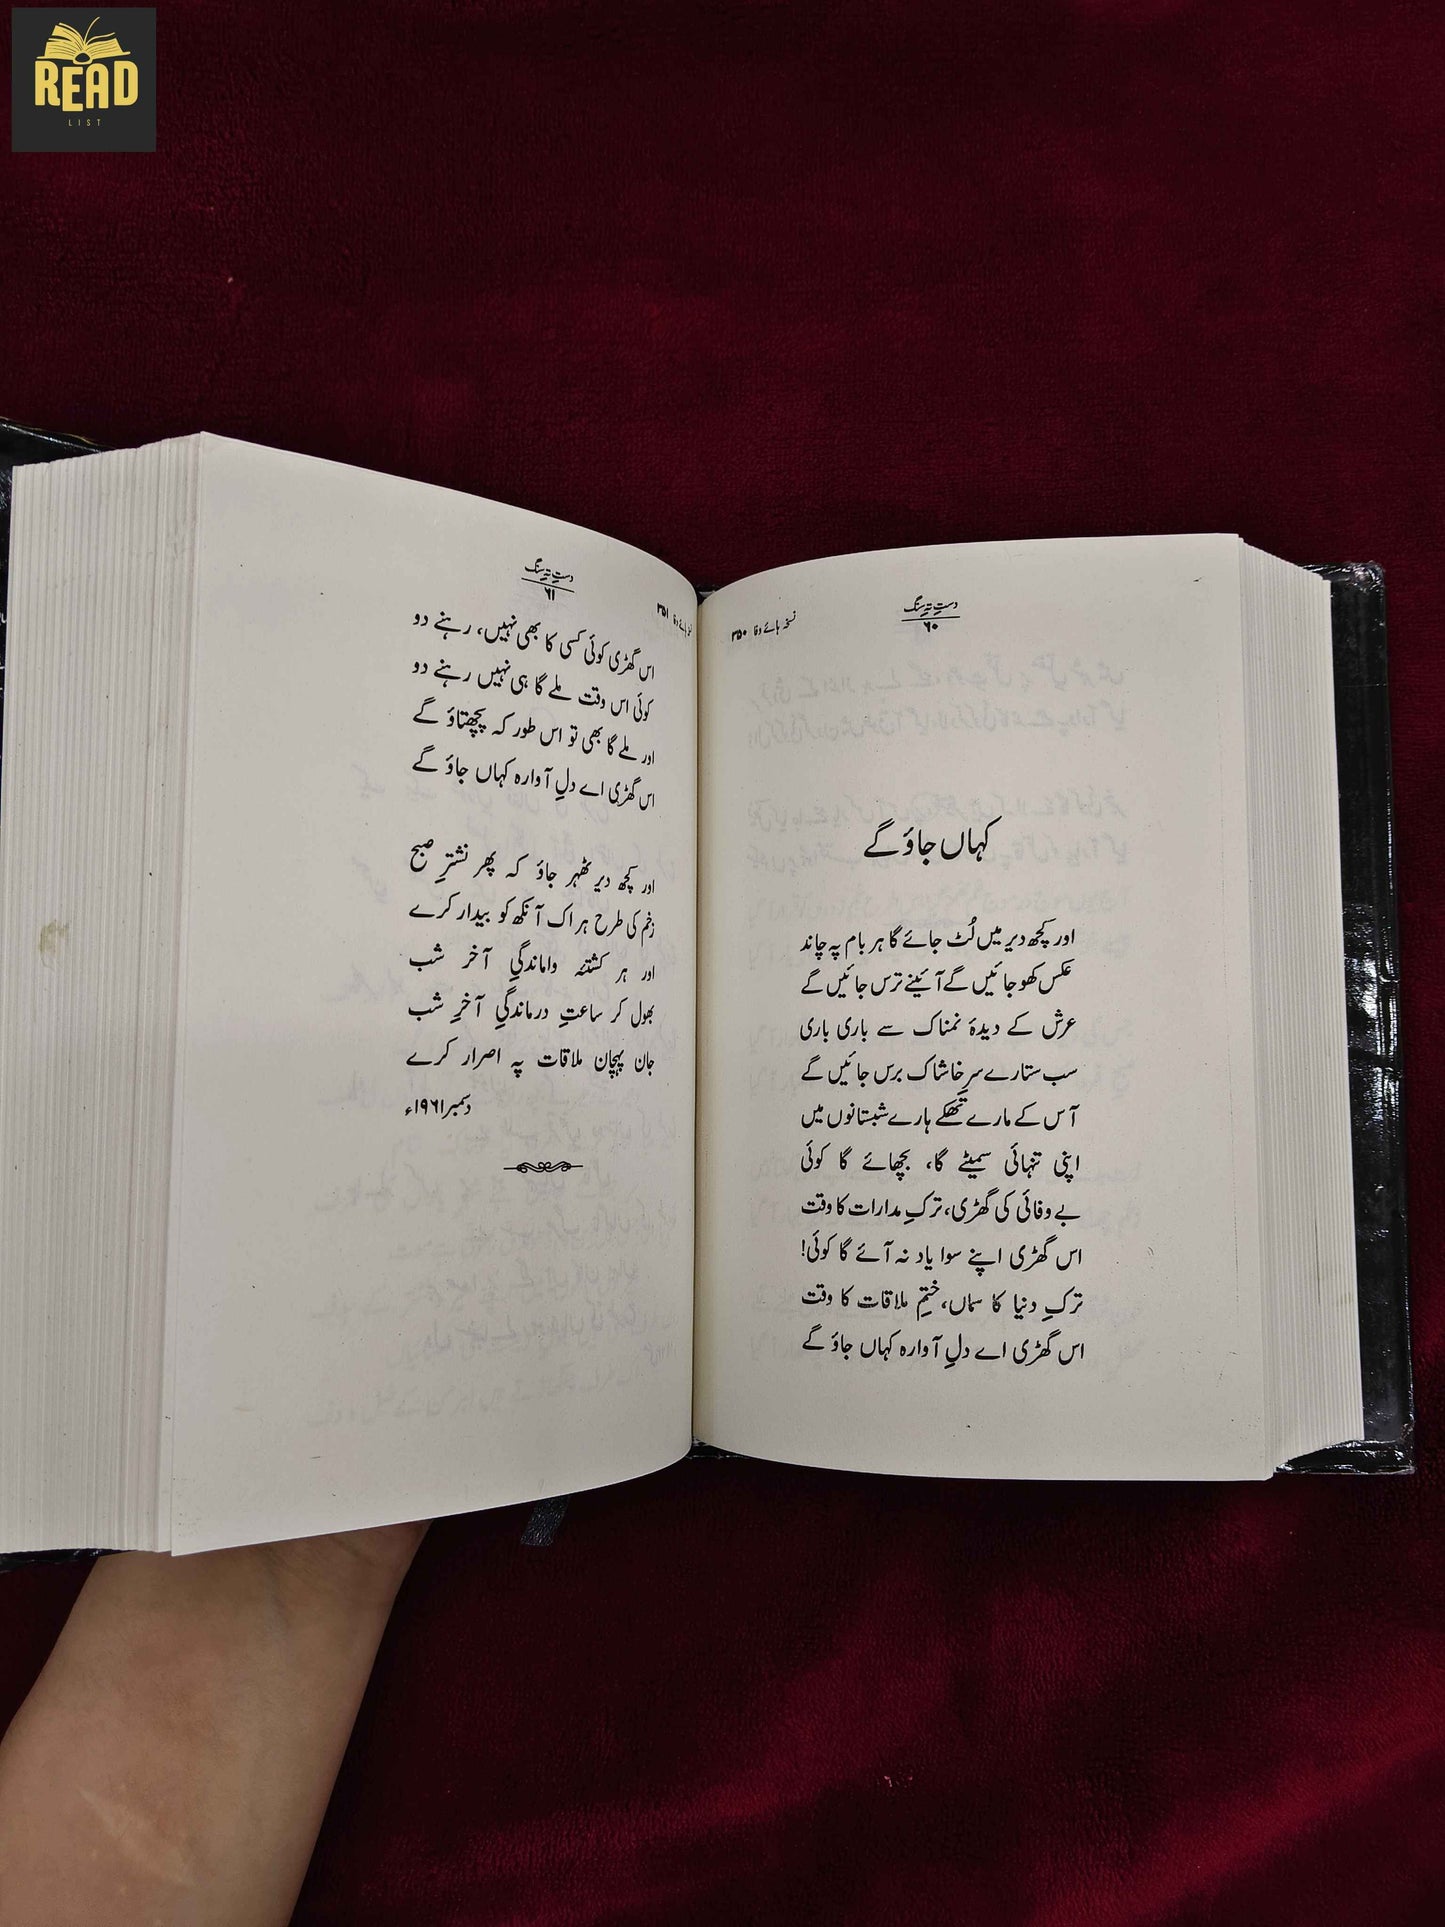 READ
LIST
دستِ تہِ سنگ
۶۰
نسخہ ہائے وفا ۳۵۰
کہاں جاؤ گے
اور کچھ دیر میں لُٹ جائے گا ہر بام پہ چاند
عکس کھو جائیں گے آئینے ترس جائیں گے
عرش کے دیدۂ نمناک سے باری باری
سب ستارے سرِ خاشاک برس جائیں گے
آس کے مارے تھکے ہارے شبستانوں میں
اپنی تنہائی سمیٹے گا، بچھائے گا کوئی
بے وفائی کی گھڑی، ترکِ مدارات کا وقت
اس گھڑی اپنے سوا یاد نہ آئے گا کوئی!
ترکِ دنیا کا سماں، ختمِ ملاقات کا وقت
اس گھڑی اے دلِ آوارہ کہاں جاؤ گے
دستِ تہِ سنگ
۶۱
نسخہ ہائے وفا ۳۵۱
اس گھڑی کوئی کسی کا بھی نہیں، رہنے دو
کوئی اس وقت ملے گا ہی نہیں رہنے دو
اور ملے گا بھی تو اس طور کہ پچھتاؤ گے
اس گھڑی اے دلِ آوارہ کہاں جاؤ گے
اور کچھ دیر ٹھہر جاؤ کہ پھر نشترِ صبح
زخم کی طرح ہر اک آنکھ کو بیدار کرے
اور ہر کشتۂ واماندگیِ آخر شب
بھول کر ساعتِ درماندگیِ آخرِ شب
جان پہچان ملاقات پہ اصرار کرے
دسمبر ۱۹۶۱ء